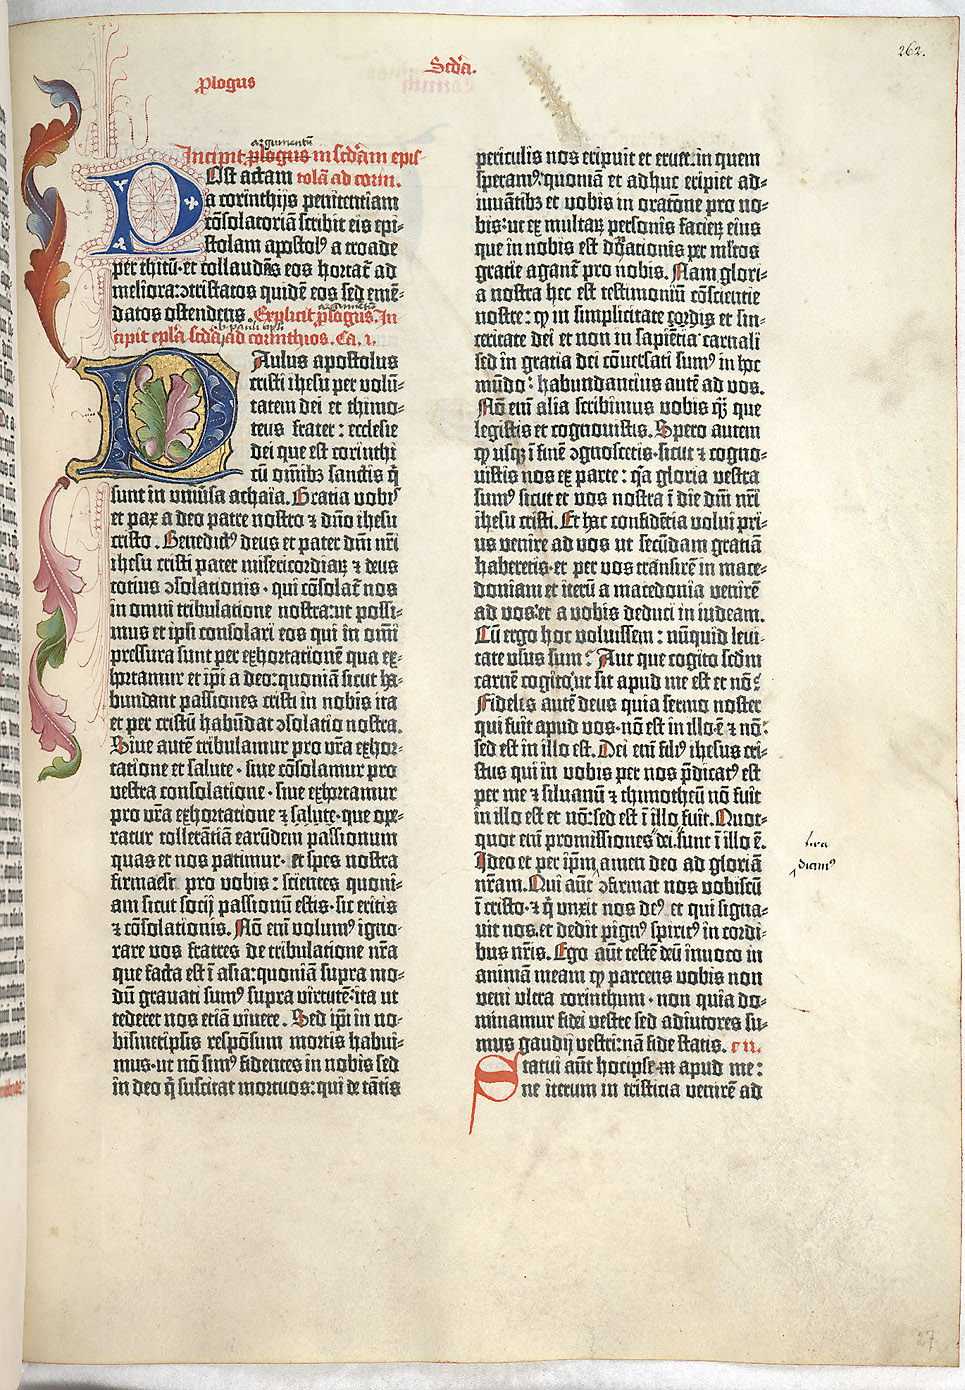 262.
Scd'a.
Plogus
argumentū
Incipit plogus in scdam epis-
Ost actam tolā ad corin.
a corinthijs penitentiam
cōsolatoriā scribit eis epi-
stolam apostol⁹ a troade
per thitū· et collaudās eos hortat̄ ad
meliora: ↄtristatos quidē eos sed emē-
datos ostendens. Explicit plogus. In
cipit epla scda ad corinthios. Ca. 1.
Paulus apostolus
cristi ihesu per volū-
tatem dei et thimo-
teus frater: ecclesie
dei que est corinthi
cū om̄ibꝫ sanctis q̄
sunt in vniūsa achaia. Gratia vobis
et pax a deo patre nostro ⁊ dn̄o ihesu
cristo. Benedict⁹ deus et pater dn̄i nr̄i
ihesu cristi pater misericordiaꝝ ⁊ deus
totius ↄsolationis· qui cōsolat̄ nos
in omni tribulatione nostra: ut possi-
mus et ipsi consolari eos qui in om̄i
pressura sunt per exhortationē qua ex-
hortamur et ip̄i a deo: quoniā sicut ha-
bundant passiones cristi in nobis ita
et per cristū habūdat ↄsolatio nostra.
Siue autē tribulamur pro vr̄a exhor-
tatione et salute· siue cōsolamur pro
vestra consolatione· siue exhortamur
pro vr̄a exhortatione ⁊ salute· que ope-
ratur tollerātiā earūdem passionum
quas et nos patimur· et spes nostra
firma est pro vobis: scientes quoni-
am sicut socij passionū estis· sic eritis
⁊ cōsolationis. Nō eni volum⁹ igno-
rare vos fratres de tribulatione nr̄a
que facta est ī asia: quoniā supra mo-
dū grauati sum⁹ supra virtutē: ita ut
tederet nos etiā viuere. Sed ip̄i in no-
bismetipsis respōsum mortis habui-
mus· ut nō sim⁹ fidentes in nobis sed
in deo q̄ suscitat mortuos: qui de tātis
periculis nos eripuit et eruet· in quem
speram⁹: quoniā et adhuc eripiet ad-
iuuātibꝫ et vobis in oratōne pro no-
bis· ut ex multaꝝ personis facieꝝ eius
que in nobis est donationis per m̄ltos
gratie agant̄ pro nobis. Nam glori-
a nostra hec est testimoniū cōscientie
nostre: ꝙ in simplicitate cordis et sin-
ceritate dei et non in sapiētia carnali
sed in gratia dei cōuersati sum⁹ in hoc
mūdo: habundantius autē ad vos.
Nō eni alia scribimus vobis q̄ꝫ que
legistis et cognouistis. Spero autem
ꝙ usqꝫ ī finē ↄgnoscetis· sicut ⁊ cogno-
uistis nos ex parte: q̄a gloria vestra
sum⁹ sicut et vos nostra ī die dn̄i nr̄i
ihesu cristi. Et hac confidētia volui pri-
us venire ad vos ut secūdam gratiā
haberetis· et per vos transirē in mace-
doniam et iterū a macedonia venirē
ad vos: et a vobis deduci in iudeam.
Cū ergo hoc voluissem: nūquid leui-
tate vsus sum? Aut que cogito scdm
carnē cogito: ut sit apud me est et nō?
Fidelis autē deus quia sermo noster
qui fuit apud vos· nō est in illo ē ⁊ nō:
sed est in illo est. Dei eni fili⁹ ihesus cri-
stus qui in vobis per nos p̄dicat⁹ est
per me ⁊ siluanū ⁊ thimotheū nō fuit
in illo est et nō: sed est ī illo fuit. Quot-
quot eni promissiones dei sunt ī illo ē.
Ideo et per ip̄m amen deo ad gloriā
nr̄am. Qui aūt ↄfirmat nos vobiscū
ī cristo· ⁊ q̄ vnxit nos de⁹· et qui signa-
uit nos· et dedit pign⁹ spirit⁹ in cordi-
bus nr̄is. Ego aūt testē deū inuoco in
animā meam ꝙ parcens vobis non
veni vltra corinthum· non quia do-
minamur fidei vestre sed adiutores su-
mus gaudij vestri: nā fide statis. c̄ II.
Statui aūt hoc ipse m̄ apud me:
ne iterum in tristicia venirē ad
dicim⁹
27